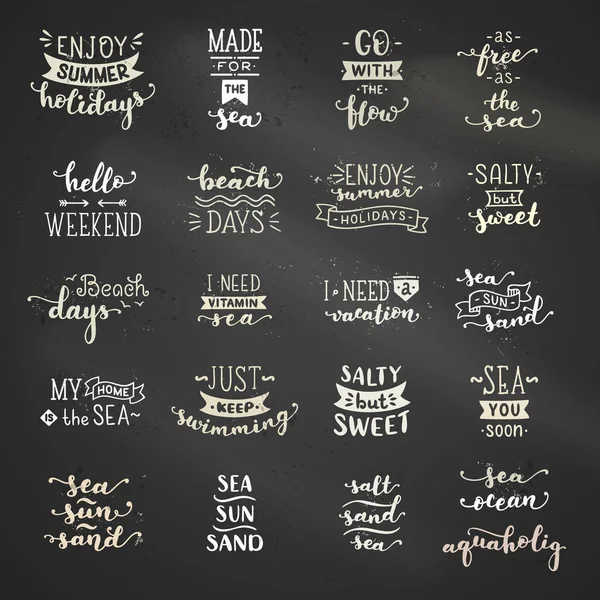 ENJOY
SUMMER
holidays
MADE
FOR
THE
sea
GO
WITH
THE
flow
as
free
as
the
sea
hello
WEEKEND
beach
DAYS
ENJOY
summer
HOLIDAYS
SALTY
but
sweet
Beach
days
I NEED
VITAMIN
sea
I NEED a
vacation
sea
SUN
sand
MY HOME
IS the SEA
JUST
KEEP
swimming
SALTY
but
SWEET
SEA
YOU
soon
sea
sun
sand
SEA
SUN
SAND
salt
sand
sea
sea
ocean
aquaholig